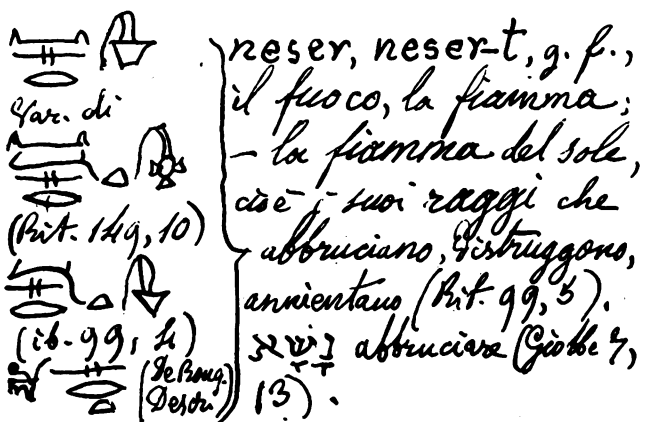 Var. di
(Rit. 149, 10)
(ib. 99, 4)
(De Roug.
Descr.)
neser, neser-t, g. f.,
il fuoco, la fiamma;
– la fiamma del sole,
cioè i suoi raggi che
abbruciano, distruggono,
annientano (Rit. 99, 5).
abbruciare (Giobbe 7,
13).